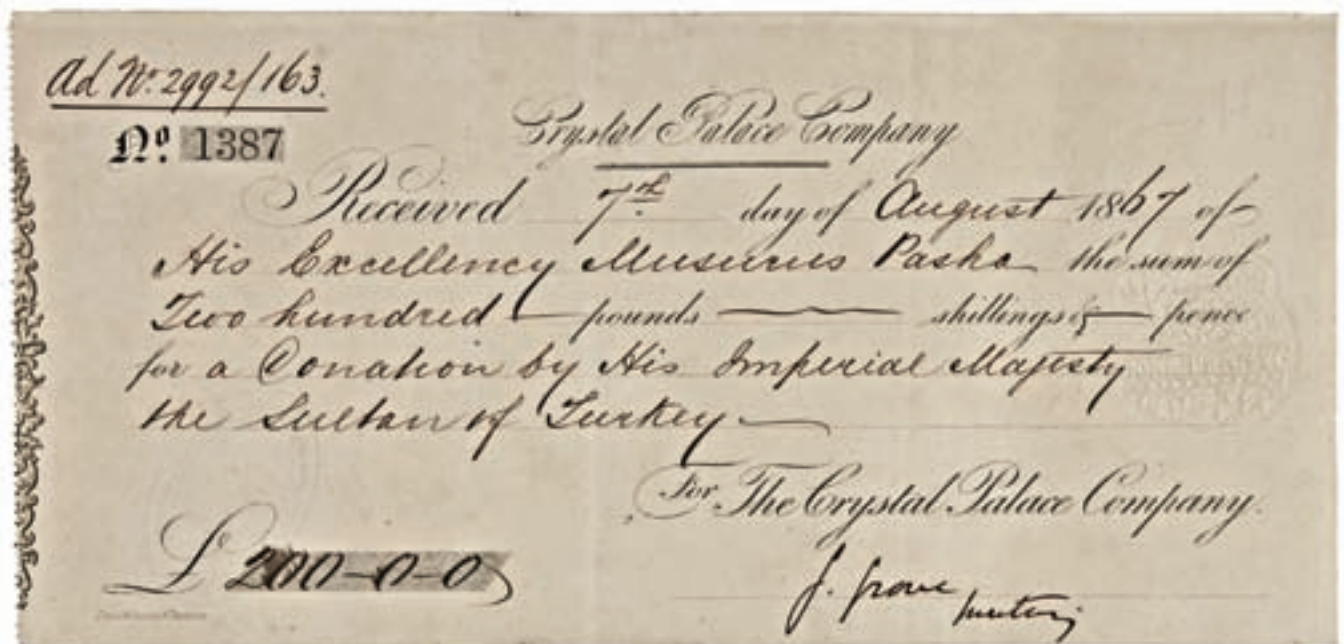 Ad No. 2992/163.
No. 1387
Crystal Palace Company
Received 7th day of August 1867 of
His Excellency Musurus Pasha the sum of
Two hundred pounds shillings & pence
for a Donation by His Imperial Majesty
the Sultan of Turkey
For The Crystal Palace Company.
£ 200-0-0
Grove